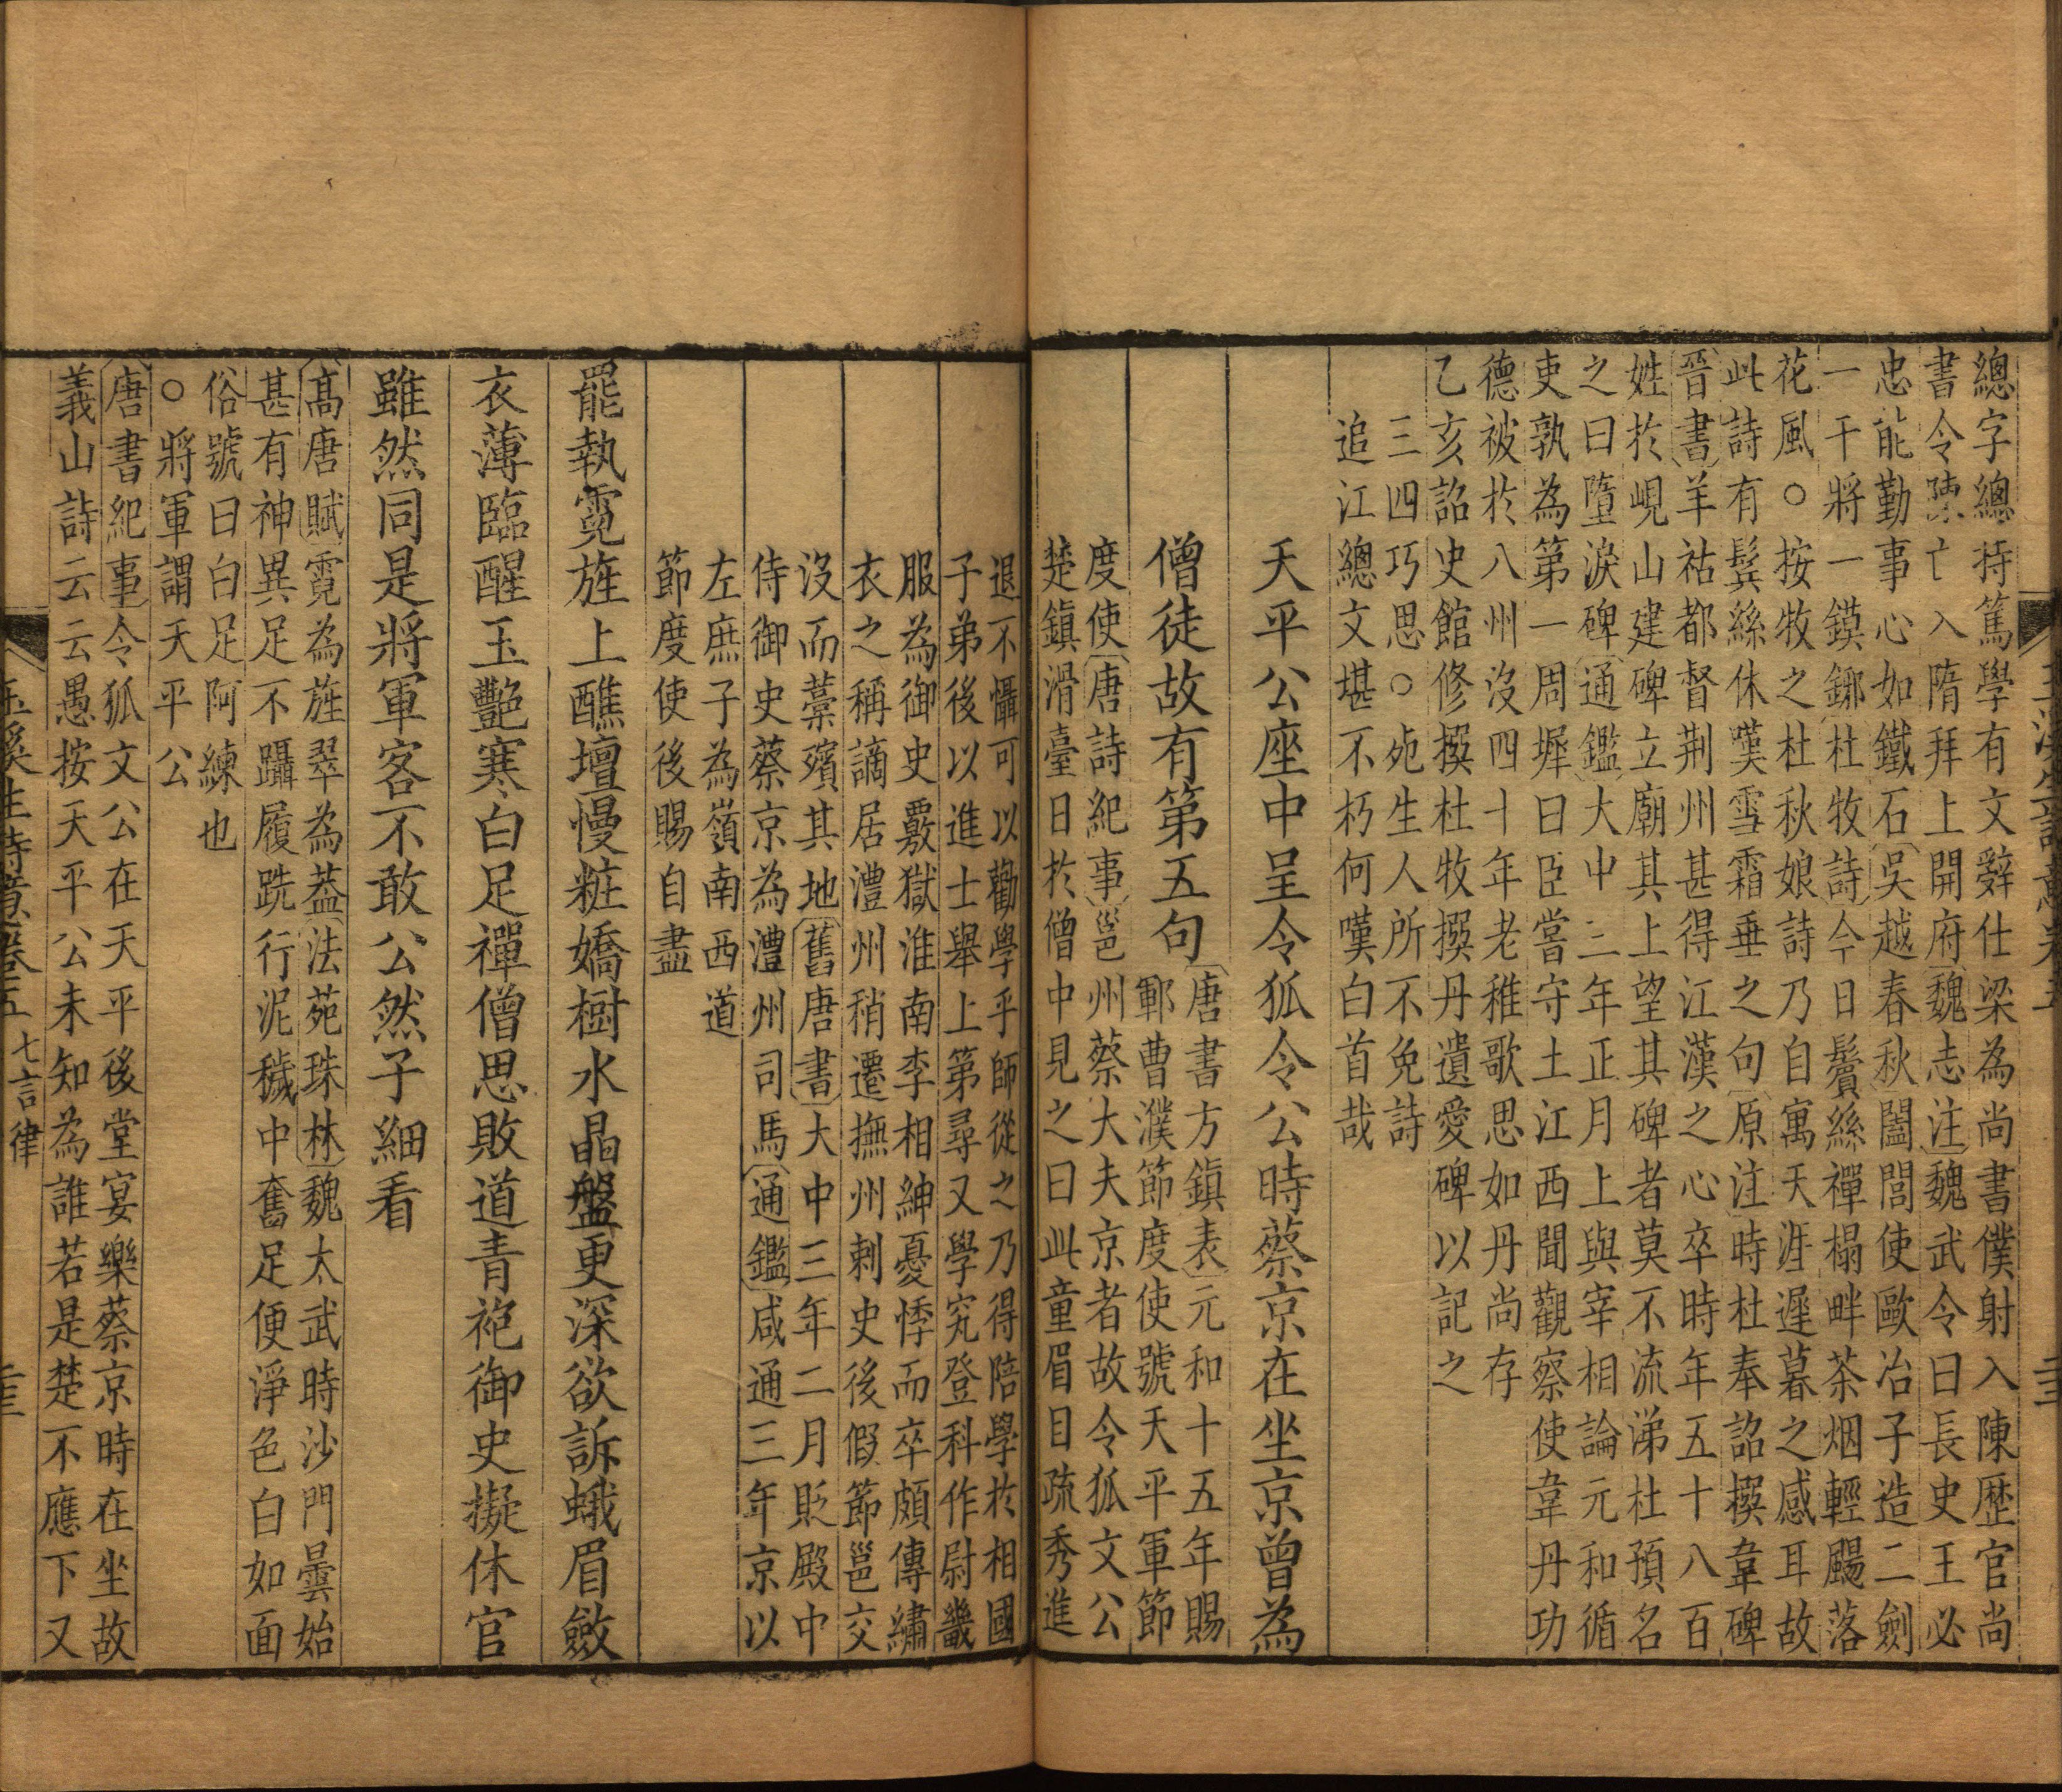 總字總持篤學有文辭仕梁為尚書僕射入陳歷官尚
書令陳亡入隋拜上開府魏志注魏武令曰長史王必
忠能勤事心如鐵石吳越春秋闔閭使歐冶子造二劍
一干將一鏌鋣杜牧詩今日鬢絲禪榻畔茶烟輕颺落
花風○按牧之杜秋娘詩乃自寓天涯遲暮之感耳故
此詩有鬓絲休嘆雪霜垂之句原注時杜奉詔撰韋碑
晉書羊祜都督荆州甚得江漢之心卒時年五十八百
姓於峴山建碑立廟其上望其碑者莫不流涕杜預名
之曰墮淚碑通鑑大中三年正月上與宰相論元和循
吏孰為第一周墀曰臣嘗守土江西聞觀察使韋丹功
德被於八州沒四十年老稚歌思如丹尚存
乙亥詔史館修撰杜牧撰丹遺愛碑以記之
三四巧思○宛生人所不免詩
追江總文堪不朽何嘆白首哉
天平公座中呈令狐令公時蔡京在坐京曾為
僧徒故有第五句
唐書方鎮表元和十五年賜
鄆曹濮節度使號天平軍節
度使唐詩紀事邕州蔡大夫京者故令狐文公
楚鎮滑臺日於僧中見之曰此童眉目疏秀進
退不懾可以勸學乎師從之乃得陪學於相國
子弟後以進士舉上第尋又學究登科作尉畿
服為御史覈獄淮南李相紳憂悸而卒頗傳繡
衣之稱謫居澧州稍遷撫州剌史後假節邕交
沒而藁殯其地舊唐書大中三年二月貶殿中
侍御史蔡京為澧州司馬通鑑咸通三年京以
左庶子為嶺南西道
節度使後賜自盡
罷執霓旌上醮壇慢粧嬌樹水晶盤更深欲訴蛾眉斂
衣薄臨醒玉艷寒白足禪僧思敗道青袍御史擬休官
雖然同是將軍客不敢公然子細看
高唐賦霓為旌翠為蓋法苑珠林魏太武時沙門曇始
甚有神異足不躡履跣行泥穢中奮足便淨色白如面
俗號曰白足阿練也
○將軍謂天平公
唐書紀事令狐文公在天平後堂宴樂蔡京時在坐故
義山詩云云愚按天平公未知為誰若是楚不應下又
玉溪生詩意卷五 七言律